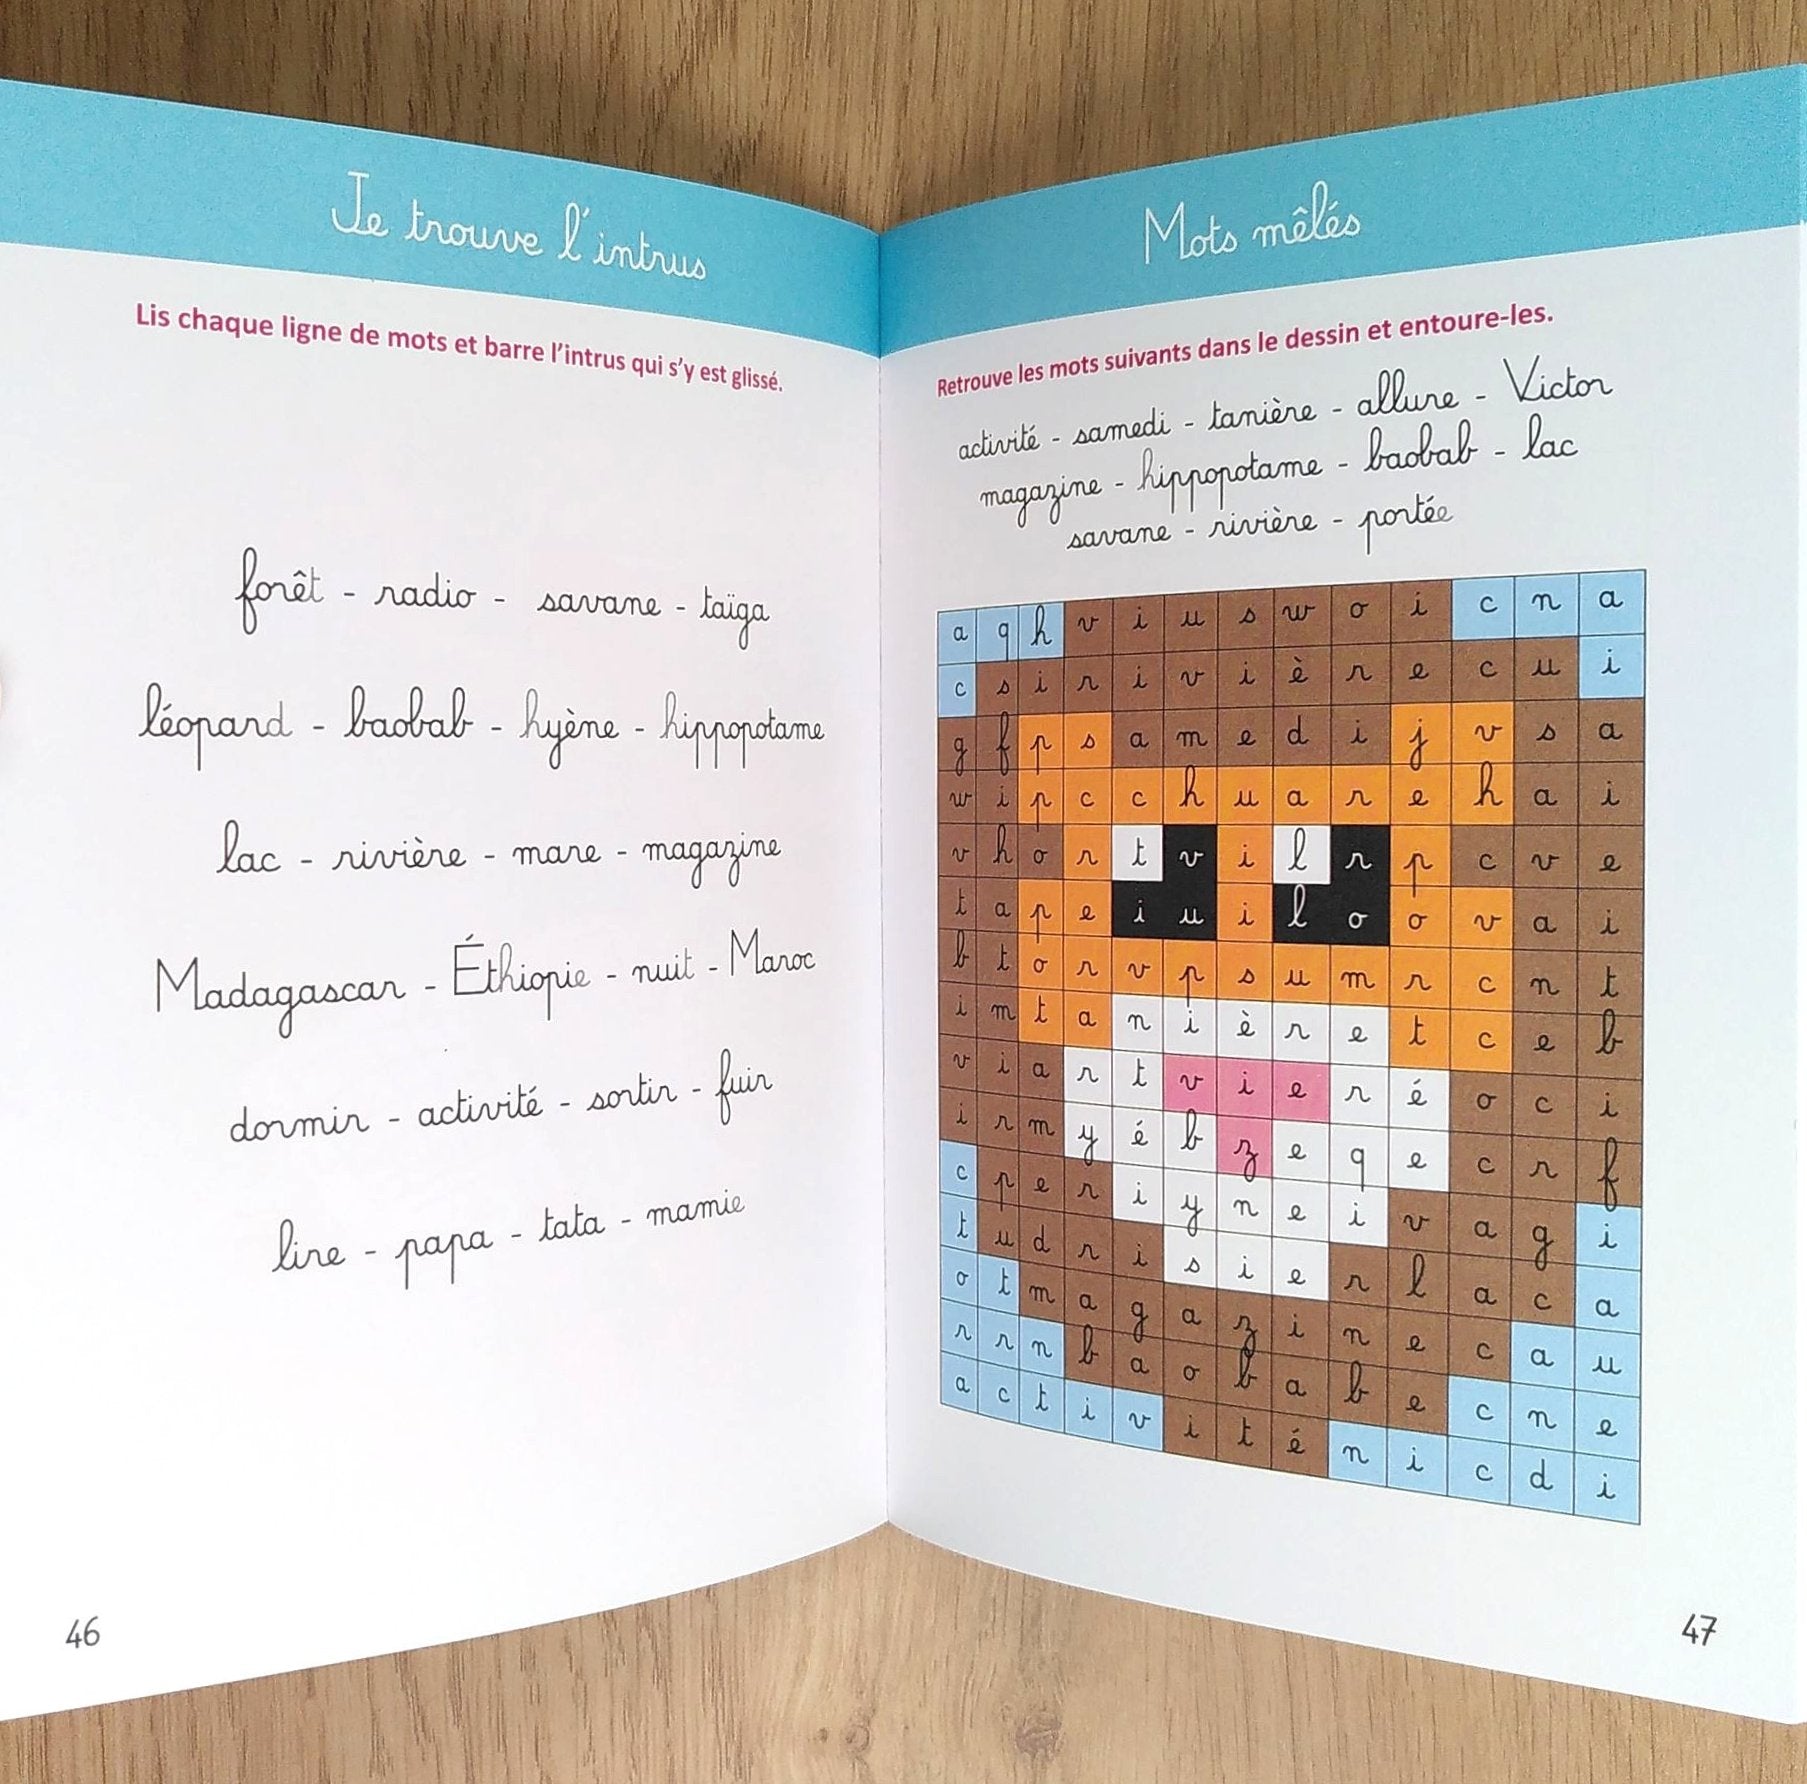 Je trouve l'intrus
Lis chaque ligne de mots et barre l'intrus qui s'y est glissé.
forêt - radio - savane - taïga
léopard - baobab - hyène - hippopotame
lac - rivière - mare - magazine
Madagascar - Éthiopie - nuit - Maroc
dormir - activité - sortir - fuir
lire - papa - tata - mamie
46
Mots mêlés
Retrouve les mots suivants dans le dessin et entoure-les.
activité - samedi - tanière - allure - Victor
magazine - hippopotame - baobab - lac
savane - rivière - portée
a q h v i u s w o i c n a
c s i r i v i è r e c u i
g f p s a m e d i j v s a
w i p c c h u a r e h a i
v h o r t v i l r p c v e
t a p e i u i l o o v a i
b t o r v p s u m r c n t
i m t a n i è r e t c e b
v i a r t v i e r é o c i
i r m y é b z e q e c r f
c p e r i y n e i v a g i
t u d r i s i e r l a c a
o t m a g a z i n e c a u
r r n b a o b a b e c n e
a c t i v i t é n i c d i
47